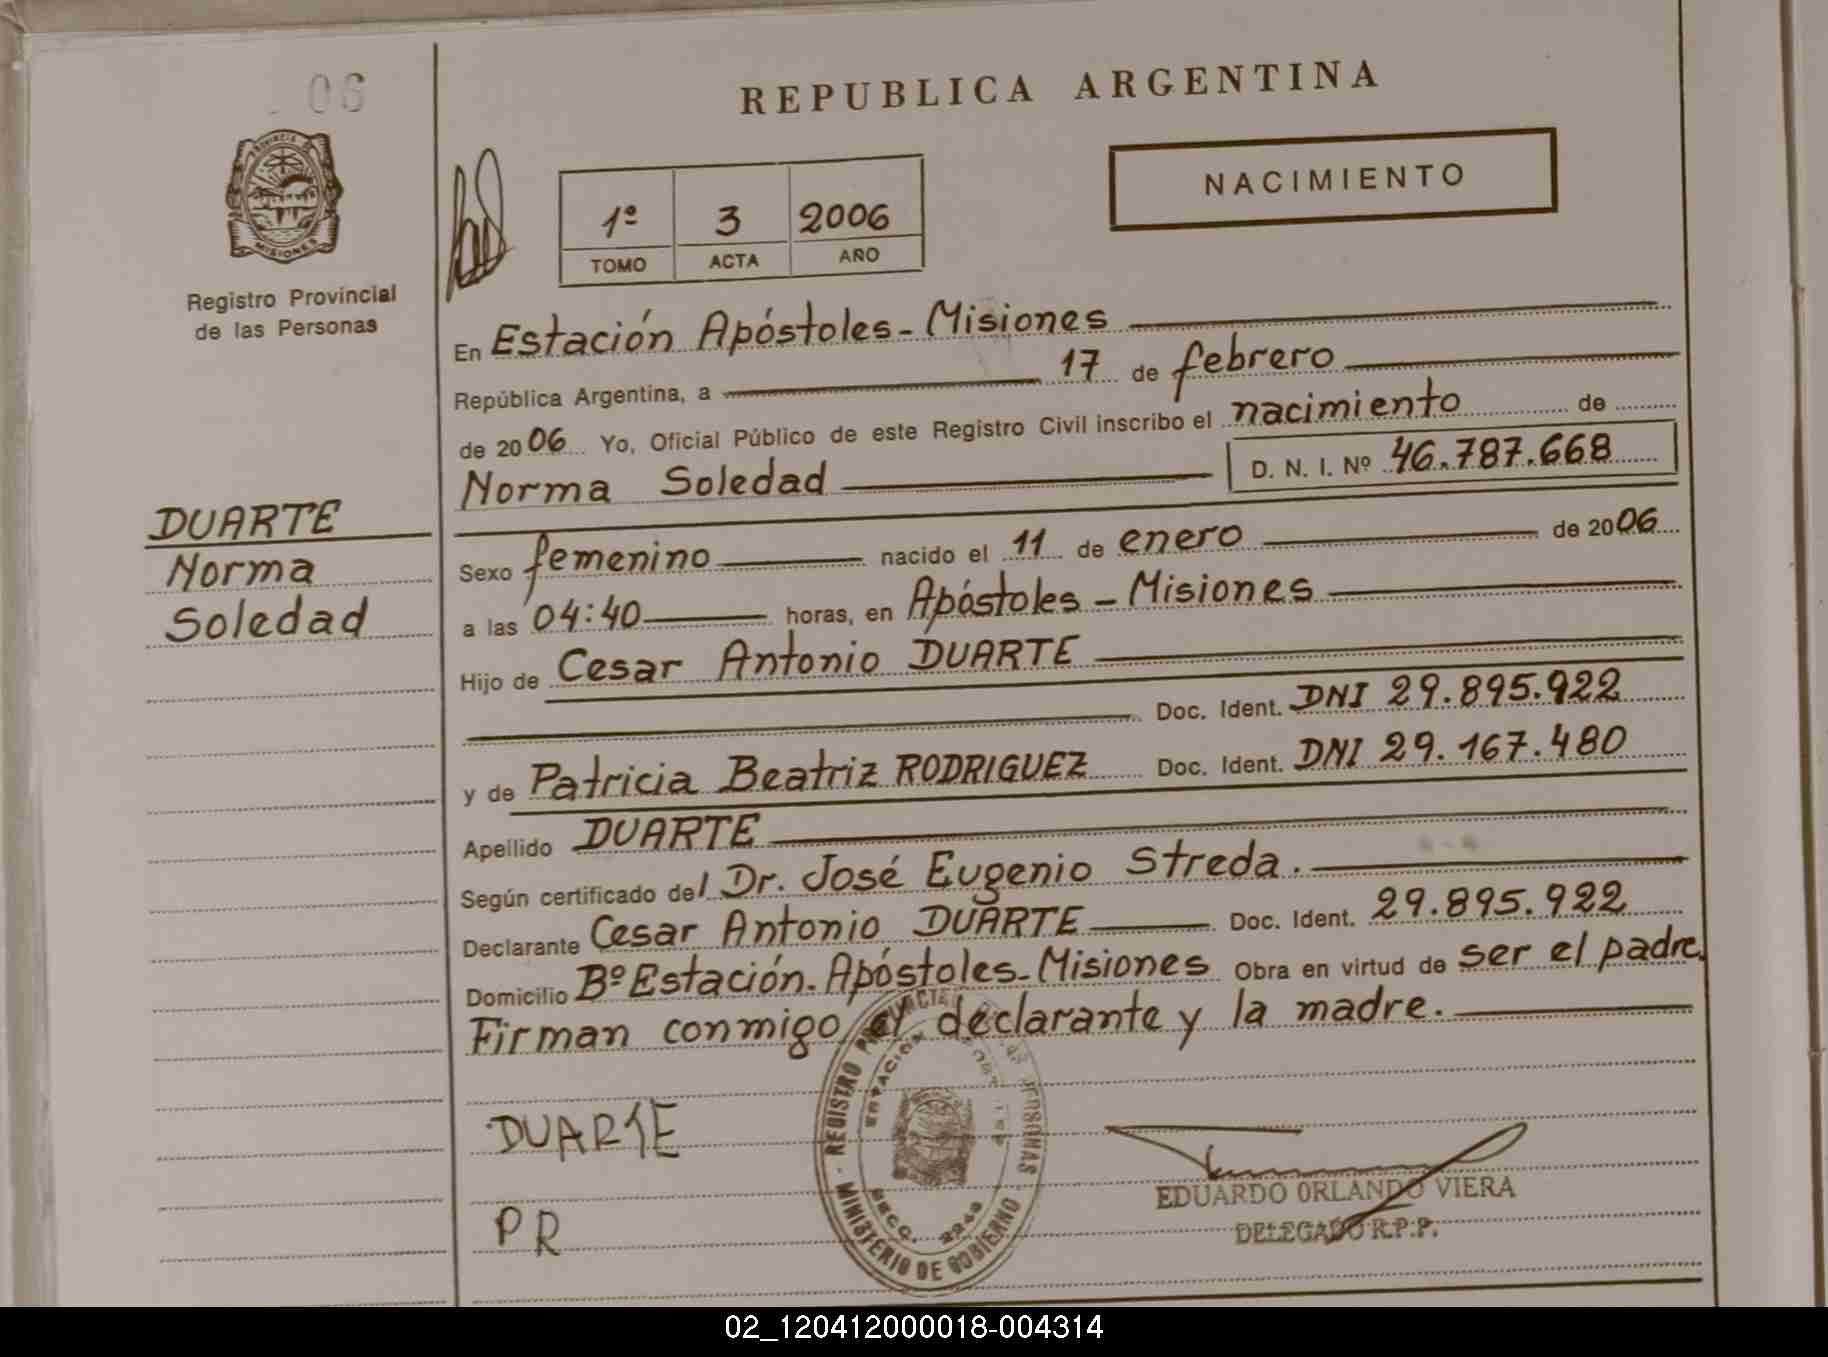 06
REPUBLICA ARGENTINA
NACIMIENTO
PROVINCIA DE
MISIONES
Registro Provincial
de las Personas
1º 3 2006
TOMO ACTA AÑO
En Estación Apóstoles - Misiones
República Argentina, a 17 de febrero
de 2006 Yo, Oficial Público de este Registro Civil inscribo el nacimiento de
Norma Soledad D. N. I. Nº 46.787.668
DUARTE
Norma
Soledad
Sexo femenino nacido el 11 de enero de 2006
a las 04:40 horas, en Apóstoles - Misiones
Hijo de Cesar Antonio DUARTE
Doc. Ident. DNI 29.895.922
y de Patricia Beatriz RODRIGUEZ Doc. Ident. DNI 29.167.480
Apellido DUARTE
Según certificado del Dr. José Eugenio Streda.
Declarante Cesar Antonio DUARTE Doc. Ident. 29.895.922
Domicilio Bº Estación. Apóstoles - Misiones Obra en virtud de ser el padre.
Firman conmigo el declarante y la madre.
DUARTE
PR
REGISTRO PERSONAS
ESTACIÓN
MINISTERIO DE GOBIERNO
EDUARDO ORLANDO VIERA
DELEGADO R.P.P.
02_120412000018-004314